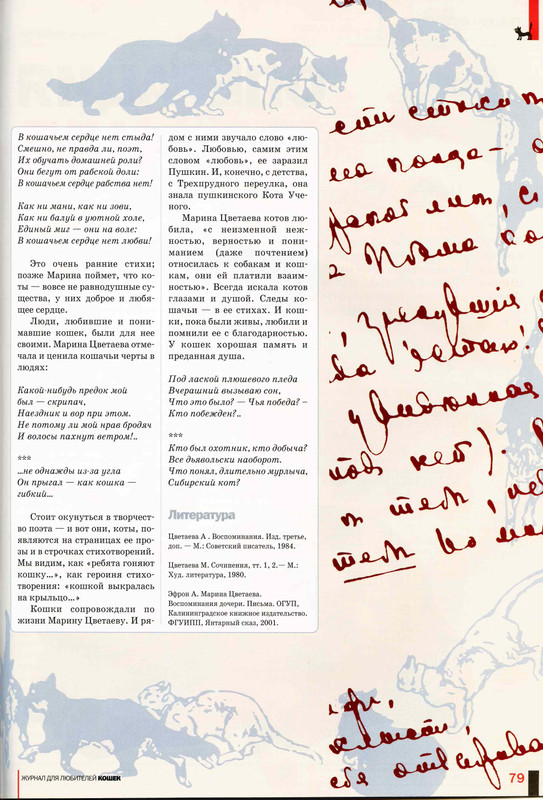 В кошачьем сердце нет стыда!
Смешно, не правда ли, поэт,
Их обучать домашней роли?
Они бегут от рабской доли:
В кошачьем сердце рабства нет!
Как ни мани, как ни зови,
Как ни балуй в уютной холе,
Единый миг — они на воле:
В кошачьем сердце нет любви!
Это очень ранние стихи;
позже Марина поймет, что ко-
ты — вовсе не равнодушные су-
щества, у них доброе и любя-
щее сердце.
Люди, любившие и пони-
мавшие кошек, были для нее
своими. Марина Цветаева отме-
чала и ценила кошачьи черты в
людях:
Какой-нибудь предок мой
был — скрипач,
Наездник и вор при этом.
Не потому ли мой нрав бродяч
И волосы пахнут ветром!..
***
..не однажды из-за угла
Он прыгал — как кошка —
гибкий...
Стоит окунуться в творчест-
во поэта — и вот они, коты, по-
являются на страницах ее про-
зы и в строчках стихотворений.
Мы видим, как «ребята гоняют
кошку...», как героиня стихо-
творения: «кошкой выкралась
на крыльцо...»
Кошки сопровождали по
жизни Марину Цветаеву. И ря-
дом с ними звучало слово «лю-
бовь». Любовью, самим этим
словом «любовь», ее заразил
Пушкин. И, конечно, с детства,
с Трехпрудного переулка, она
знала пушкинского Кота Уче-
ного.
Марина Цветаева котов лю-
била, «с неизменной неж-
ностью, верностью и пони-
манием (даже почтением)
относилась к собакам и кош-
кам, они ей платили взаим-
ностью». Всегда искала котов
глазами и душой. Следы ко-
шачьи — в ее стихах. И кош-
ки, пока были живы, любили и
помнили ее с благодарностью.
У кошек хорошая память и
преданная душа.
Под лаской плюшевого пледа
Вчерашний вызываю сон,
Что это было? — Чья победа? –
Кто побежден?..
***
Кто был охотник, кто добыча?
Все дьявольски наоборот.
Что понял, длительно мурлыча,
Сибирский кот?
Литература
Цветаева А . Воспоминания. Изд. третье,
доп. — М.: Советский писатель, 1984.
Цветаева М. Сочинения, тт. 1, 2.— М.:
Худ. литература, 1980.
Эфрон А. Марина Цветаева.
Воспоминания дочери. Письма. ОГУП,
Калининградское книжное издательство.
ФГУИПП, Янтарный сказ, 2001.
ЖУРНАЛ ДЛЯ ЛЮБИТЕЛЕЙ КОШЕК
79